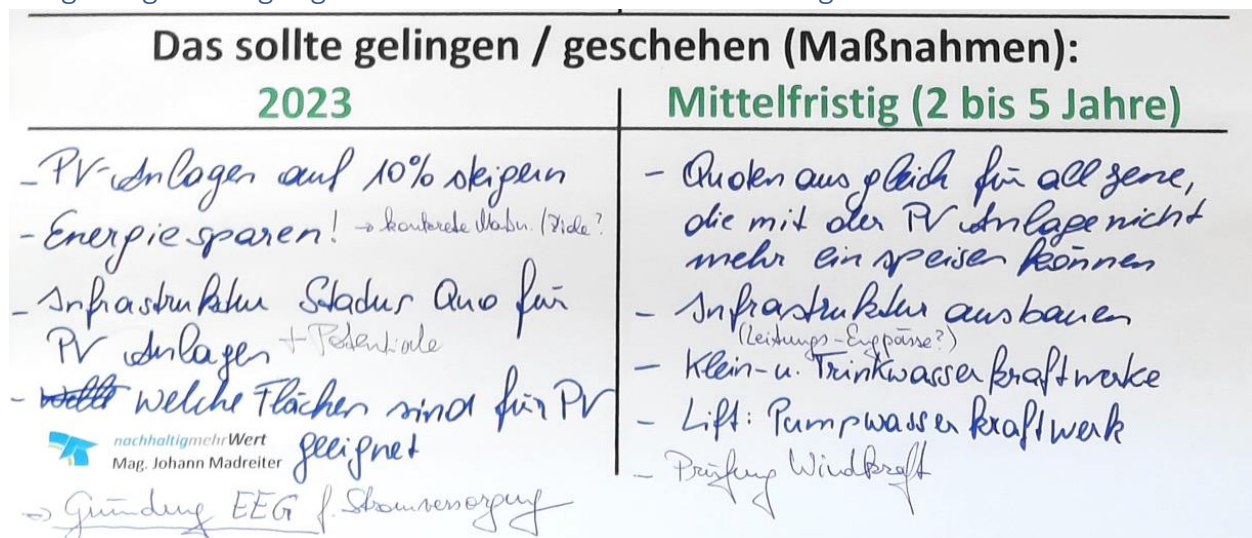 Das sollte gelingen / geschehen (Maßnahmen):
2023
- PV-Anlagen auf 10% steigern
- Energie sparen! → konkrete Maßn. / Ziele?
- Infrastruktur Stadus Quo für
PV Anlagen + Potentiale
- welche Flächen sind für PV
geeignet
nachhaltigmehrWert
Mag. Johann Madreiter
→ Gründung EEG f. Stromversorgung
Mittelfristig (2 bis 5 Jahre)
- Quotenausgleich für all jene,
die mit der PV Anlage nicht
mehr einspeisen können
- Infrastruktur ausbauen
(Leitungs-Engpässe?)
- Klein- u. Trinkwasserkraftwerke
- Lift: Pumpwasserkraftwerk
- Prüfung Windkraft